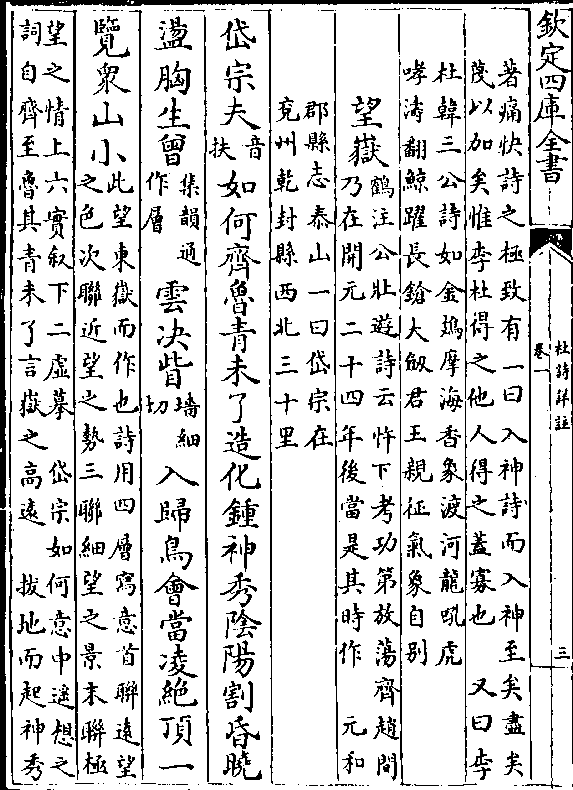 欽定四庫全書
杜詩詳註
卷一
三
著痛快詩之極致有一曰入神詩而入神至矣盡矣
蔑以加矣惟李杜得之他人得之蓋寡也 又曰李
杜韓三公詩如金鳷摩海香象渡河龍吼虎
哮濤翻鯨躍長鎗大劔君王親征氣象自别
望嶽
鶴注公壯遊詩云忤下考功第放蕩齊趙間
乃在開元二十四年後當是其時作 元和
郡縣志泰山一曰岱宗在
兖州乾封縣西北三十里
岱宗夫音扶如何齊魯青未了造化鍾神秀陰陽割昏曉
盪胸生曾集韻通作層雲决眥墻細切入歸鳥會當凌絶頂一
覽衆山小
此望東嶽而作也詩用四層寫意首聯遠望
之色次聯近望之勢三聯細望之景末聯極
望之情上六實叙下二虚摹 岱宗如何意中遥想之
詞自齊至魯其青未了言嶽之高遠 拔地而起神秀